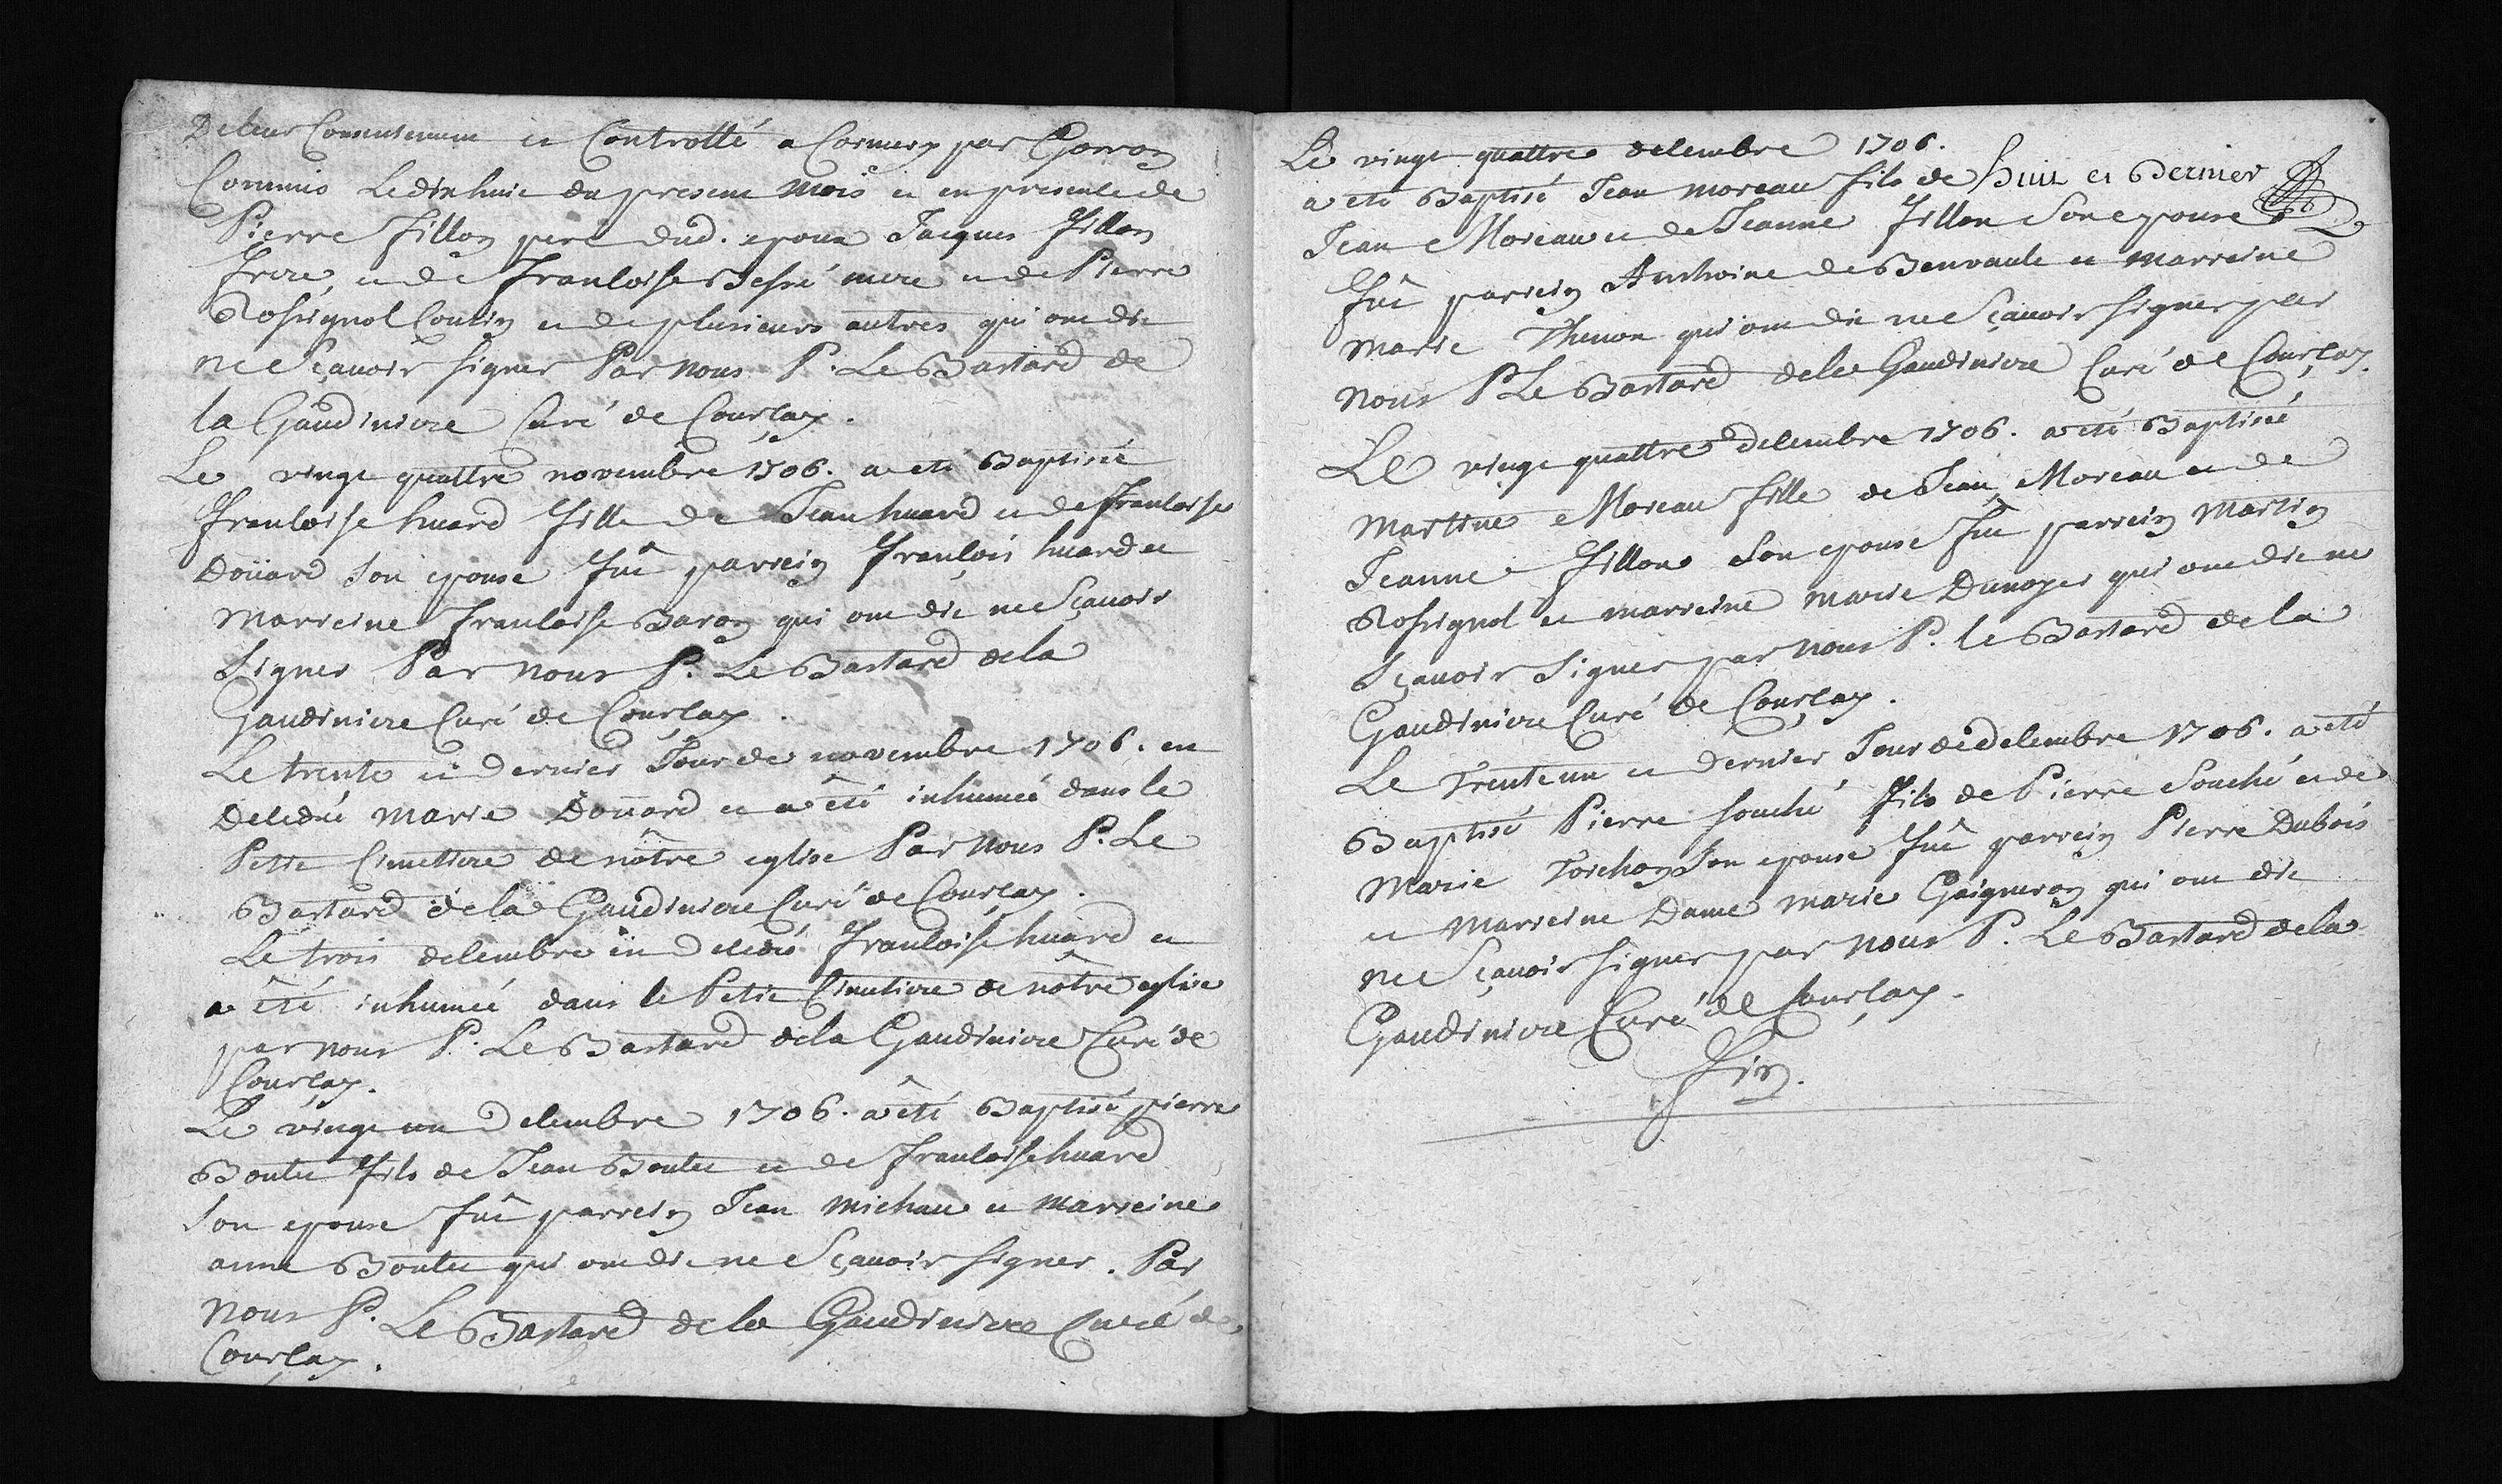 De leur Consentement et Controllé a Cormery par Gorron
Commis Le dix huit du present mois et en presence de
Pierre fillon pere dud. epoux Jacques fillon
frere, et de francoise Bessé mere et de Pierre
Rossignol Cousin et de plusieurs autres qui ont dit
ne Sçavoir signer Par nous P. Le Bastard de
la Gaudiniere Curé de Courçay.
Le vingt quattre novembre 1706. a eté Baptisée
francoise huard fille de Jean huard et de francoise
Doüard son epouse fut parrein françois huard et
Marreine francoise Baron qui ont dit ne Sçavoir
signer Par nous P. Le Bastard de la
Gaudiniere Curé de Courçay.
Le trente et dernier Jour de novembre 1706. est
Decedée marie Doüard et a êté inhumée dans le
Petit Cimettiere de nôtre eglise Par nous P. Le
Bastard de la Gaudiniere Curé de Courçay.
Le trois decembre est Decedée francoise huard et
a êté inhumée dans le Petit Cimetiere de nôtre eglise
par nous P. Le Bastard de la Gaudiniere Curé de
Courçay.
Le vingt un Decembre 1706. a êté Baptisé pierre
Boutet fils de Jean Boutet et de francoise huard
son epouse fut parrein Jean michau et Marreine
anne Boutet qui ont dit ne Sçavoir signer. Par
nous P. Le Bastard de la Gaudiniere Curé de
Courçay.
Le vingt quattre decembre 1706.
huit et dernier
a eté Baptisé Jean moreau fils de
Jean Moreau et de Jeanne fillon son epouse
fut parrein Anthoine de Benvault et marreine
marie Thenon qui ont dit ne Sçavoir signer par
nous P Le Bastard de la Gaudiniere Curé de Courçay.
Le vingt quattre decembre 1706. a eté Baptisée
martine Moreau fille de Jean Moreau et de
Jeanne fillon son epouse fut parrein Martin
Rossignol et marreine marie Dunoyer qui ont dit ne
Sçavoir signer par nous P. le Bastard de la
Gaudiniere Curé de Courçay.
Le Trente un et dernier Jour de decembre 1706. a eté
Baptisé Pierre souché fils de Pierre Souché et de
Marie Torchon son epouse fut parrein Pierre Dubois
et Marreine Dame marie Gaigneron qui ont dit
ne Sçavoir signer par nous P. Le Bastard de la
Gaudiniere Curé de Courçay.
fin.